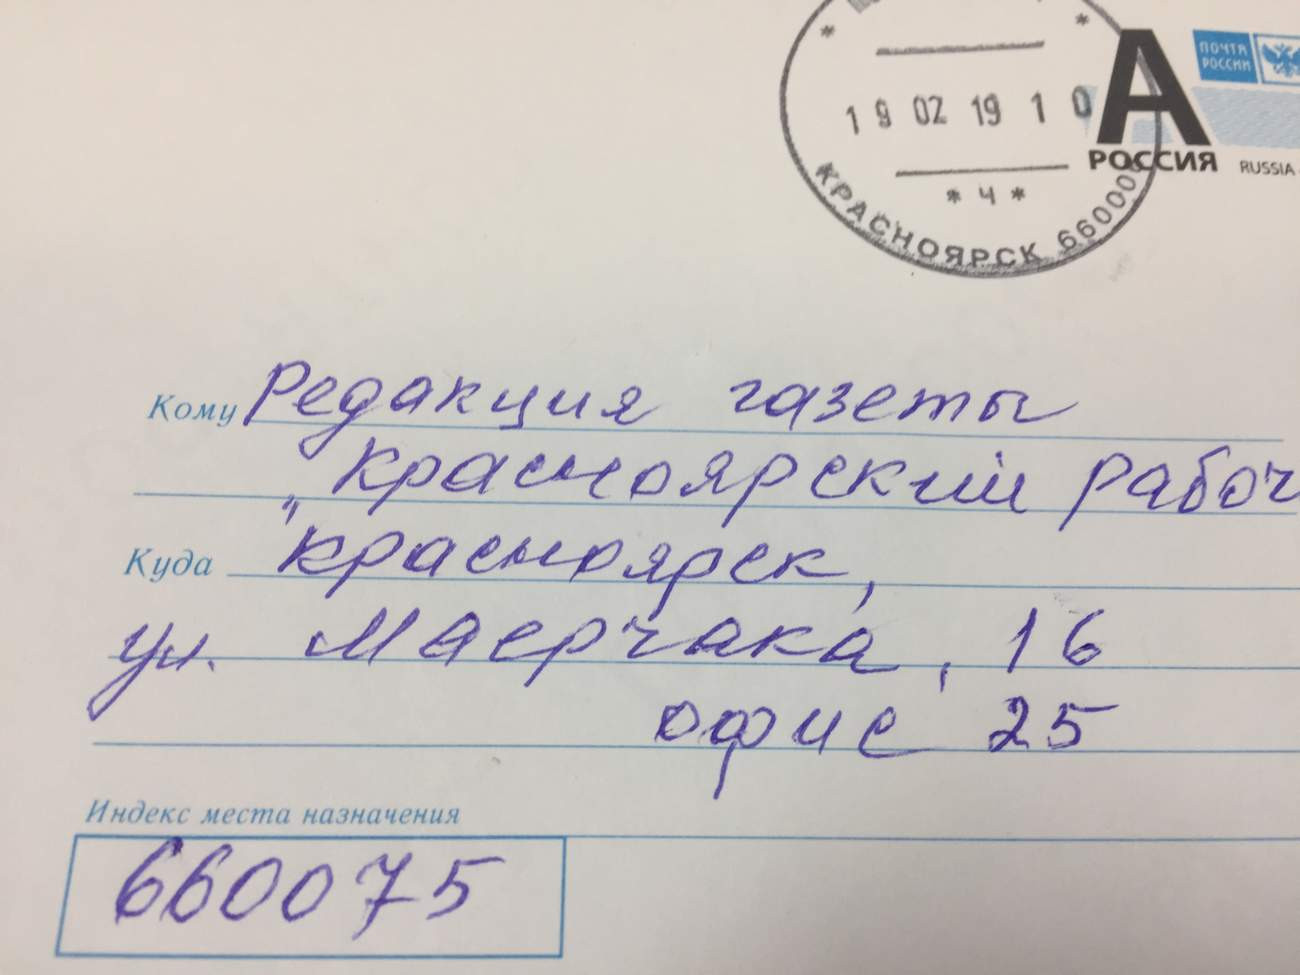 ПОЧТА
РОССИИ
19 02 19 10
А
РОССИЯ
RUSSIA
* ч *
КРАСНОЯРСК 66000
Кому Редакция газеты
„Красноярский рабоч
Куда Красноярск,
ул. Маерчака, 16
офис 25
Индекс места назначения
660075